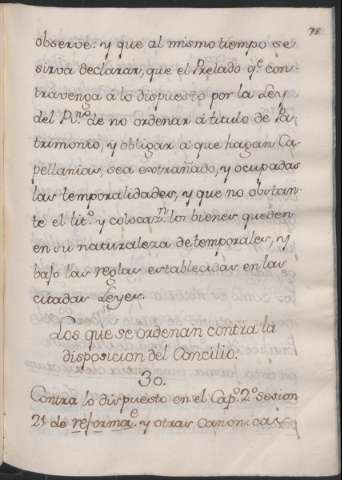 78
observe: y que al mismo tiempo se
sirva declarar, que el Prelado q.^e con-
travenga á lo dispuesto por la Ley
del R.^no de no ordenar á titulo de Pa-
trimonio, y obligar a que hagan Ca-
pellanias, sea extrañado, y ocupadas
las temporalidades, y que no obstan-
te el tit.^o y colocaz.^n los bienes queden
en su naturaleza de temporales, y
bajo las reglas establecidas en las
citadas Leyes.
Los que se ordenan contra la
disposicion del Concilio.
30.
Contra lo dispuesto en el Cap.^o 2.^o sesion
21 de reformae. y otras canonicas